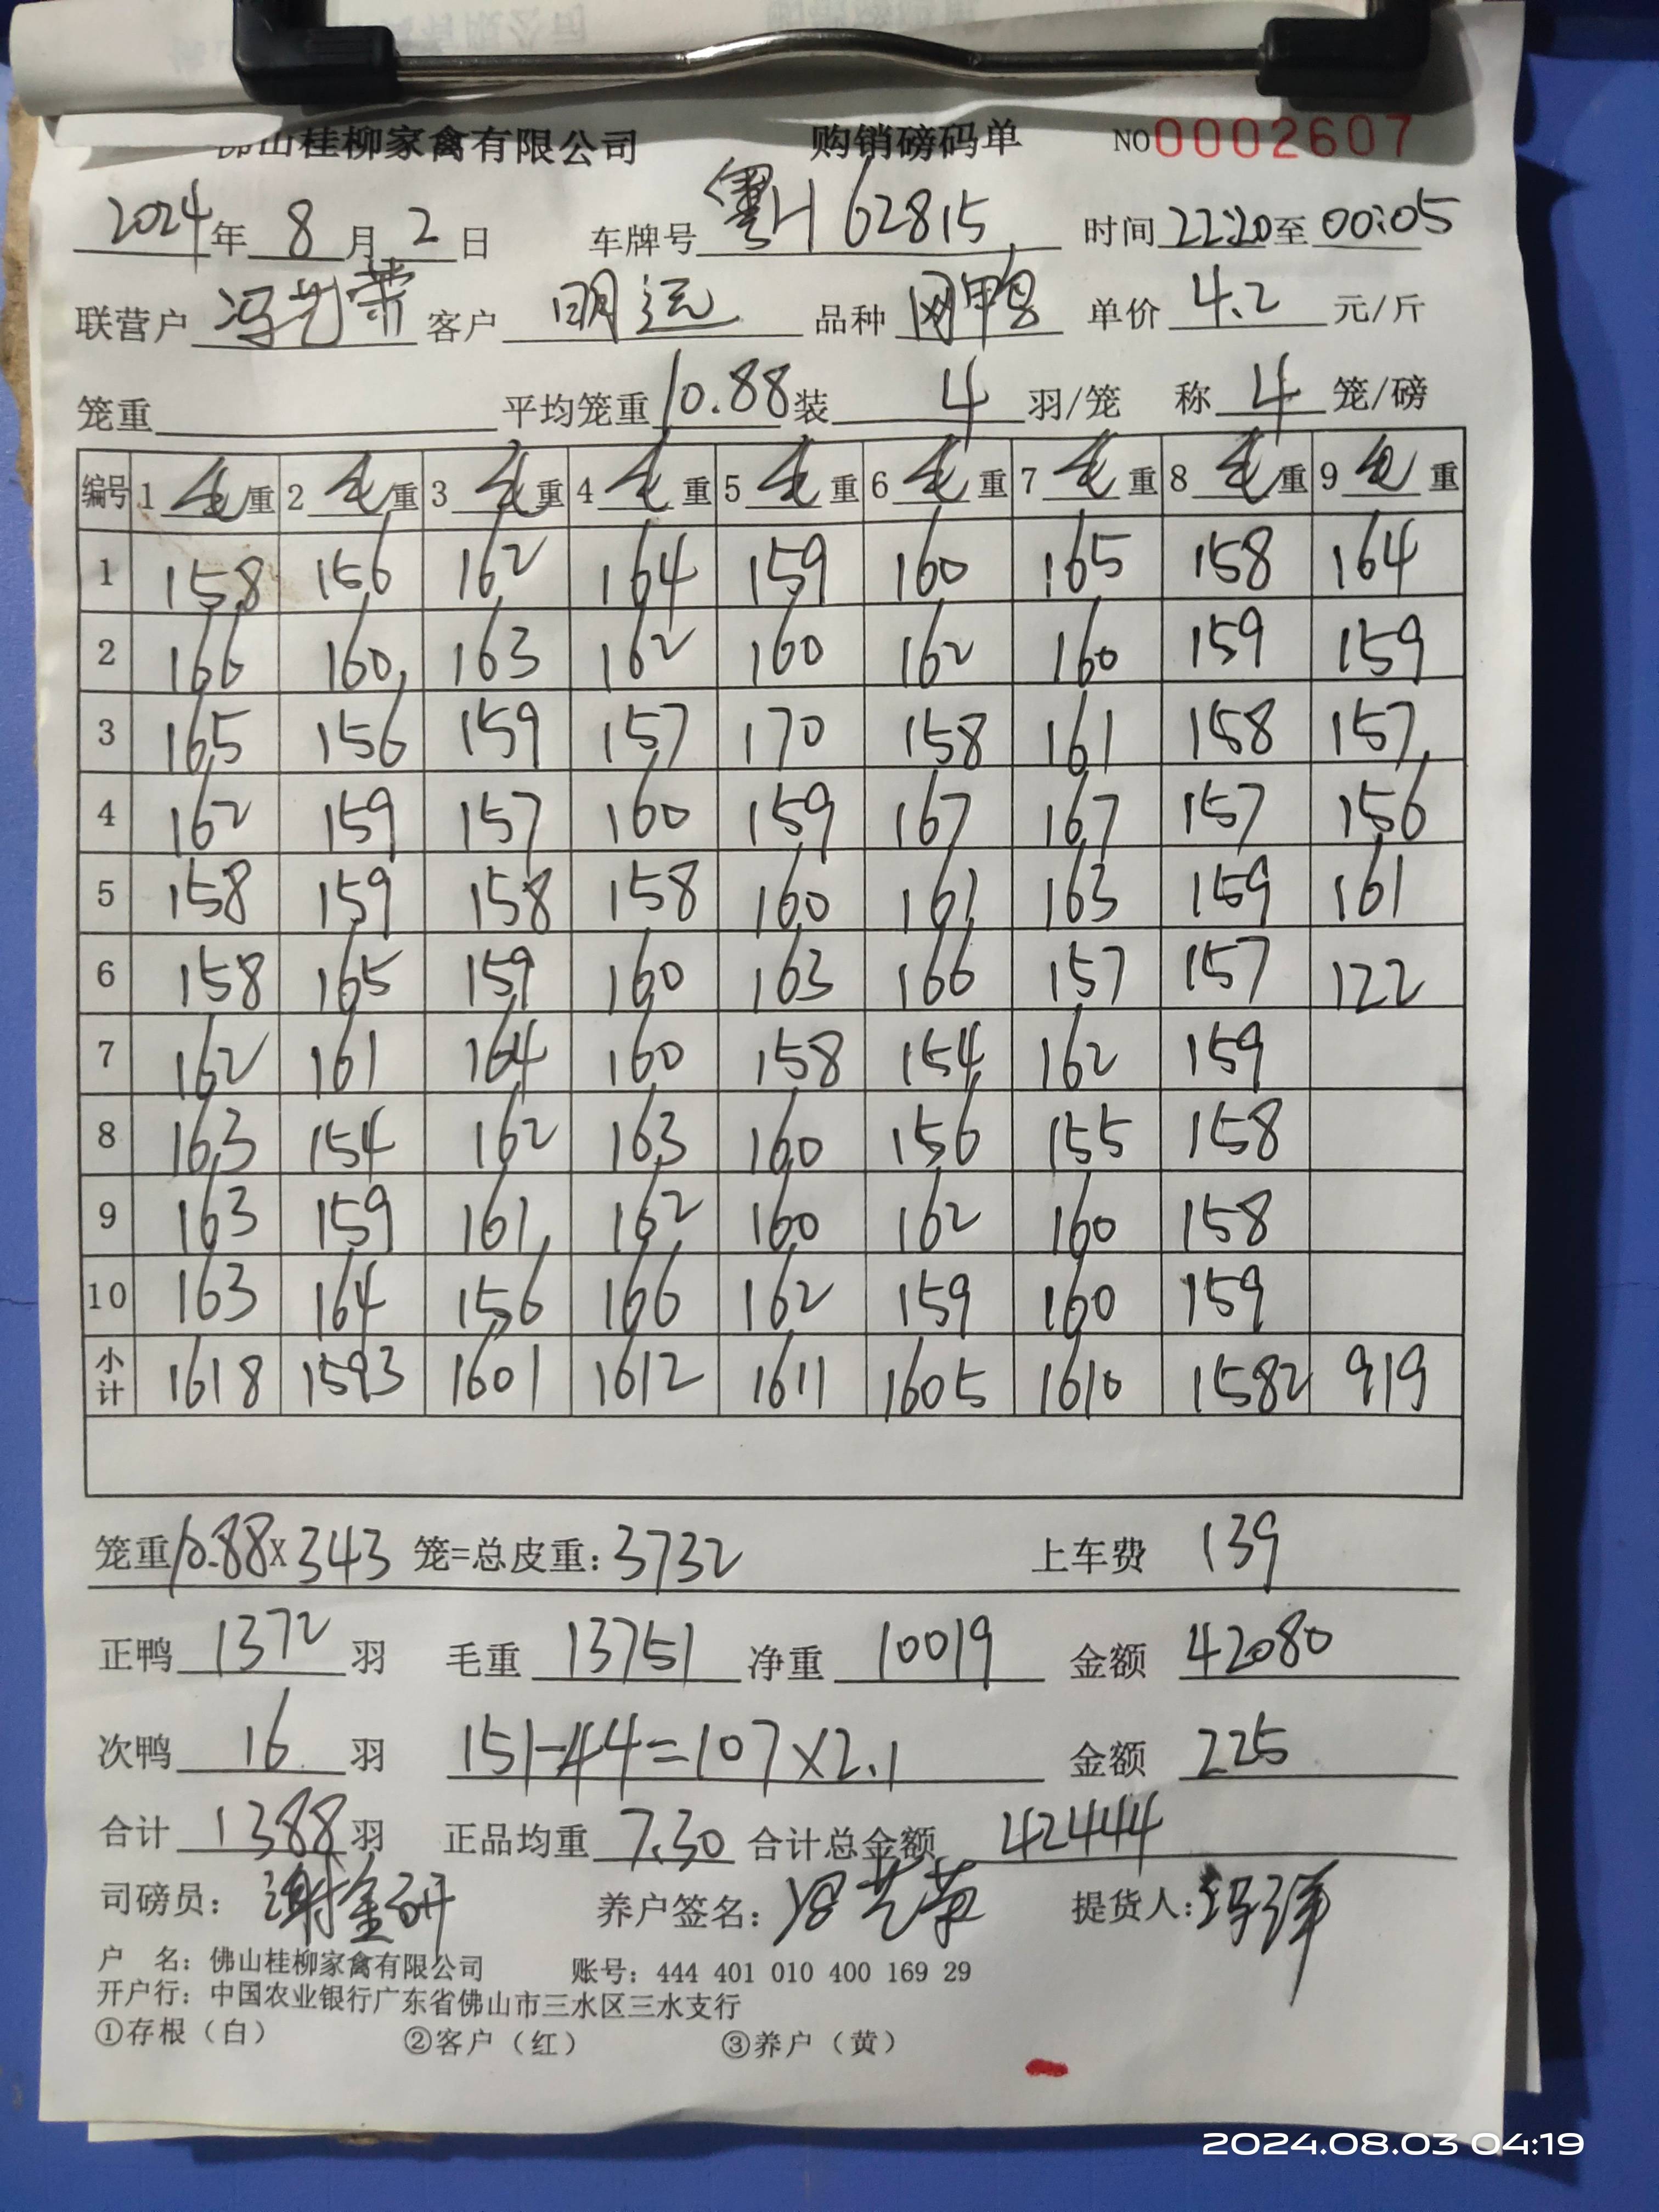 佛山桂柳家禽有限公司 购销磅码单 NO0002607
2024年 8月 2日 车牌号 粤H 62815 时间 22:20至 00:05
联营户 冯艺荣 客户 明远 品种 网鸭 单价 4.2 元/斤
笼重 平均笼重 10.88 装 4 羽/笼 称 4 笼/磅
编号 1 毛重 2 毛重 3 毛重 4 毛重 5 毛重 6 毛重 7 毛重 8 毛重 9 毛重
1 158 156 162 164 159 160 165 158 164
2 166 160 163 162 160 162 160 159 159
3 165 156 159 157 170 158 161 158 157
4 162 159 157 160 159 167 167 157 156
5 158 159 158 158 160 161 163 159 161
6 158 165 159 160 163 166 157 157 122
7 162 161 164 160 158 154 162 159
8 163 154 162 163 160 156 155 158
9 163 159 161 162 160 162 160 158
10 163 164 156 166 162 159 160 159
小计 1618 1593 1601 1612 1611 1605 1610 1582 919
笼重10.88X343 笼=总皮重:3732 上车费 139
正鸭 1372 羽 毛重 13751 净重 10019 金额 42080
次鸭 16 羽 151-44=107×2.1 金额 225
合计 1388 羽 正品均重 7.30 合计总金额 42444
司磅员: 谢金研 养户签名: 冯艺荣 提货人:
户 名: 佛山桂柳家禽有限公司 账号: 444 401 010 400 169 29
开户行: 中国农业银行广东省佛山市三水区三水支行
①存根(白) ②客户(红) ③养户(黄)
2024.08.03 04:19